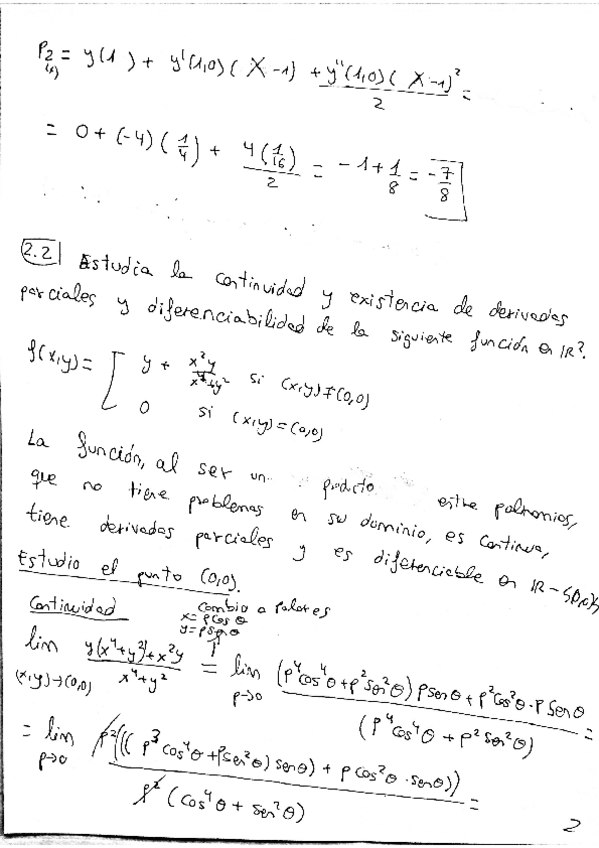 P₂(x) = y(1) + y'(1,0)(x-1) + y''(1,0)(x-1)²/2 =
= 0 + (-4)(1/4) + 4(1/16)/2 = -1 + 1/8 = -7/8
2.2 Estudia la continuidad y existencia de derivadas
parciales y diferenciabilidad de la siguiente función en IR².
f(x,y) = [ y + x²y/(x⁴+y²) si (x,y)≠(0,0)
0 si (x,y)=(0,0)
La función, al ser un producto entre polinomios,
que no tiene problemas en su dominio, es continua,
tiene derivadas parciales y es diferenciable en IR-{(0,0)}
Estudio el punto (0,0).
Continuidad
cambio a polares
x=ρcosθ
y=ρsenθ
lim (x,y)→(0,0) y(x⁴+y²)+x²y / x⁴+y² = lim ρ→0 (ρ⁴cos⁴θ+ρ²sen²θ)ρsenθ+ρ²cos²θ·ρsenθ / (ρ⁴cos⁴θ+ρ²sen²θ) =
= lim ρ→0 ρ²((ρ³cos⁴θ+ρsen²θ)senθ)+ρcos²θ·senθ)) / ρ²(cos⁴θ+sen²θ) =
2